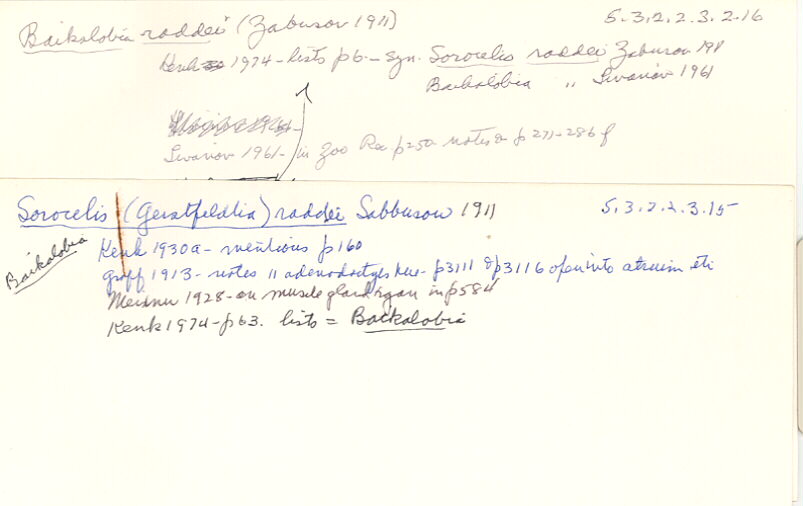 Baikalobia raddei (Zabusov 1911) 5.3.2.2.3.2.16
Kenk 1974 - lists p6 - syn. Sorocelis raddei Zabusov 1911
Baikalobia " Livanov 1961
Livanov 1961 - in Zoo Rec p250 notes on p271-286 f
Sorocelis (Gerstfeldtia) raddei Sabbusow 1911 5.3.2.2.3.15
Baikalobia
Kenk 1930a - mentions p160
Graff 1913 - notes 11 adenodactyls here - p3111 & p3116 open into atrium etc
Meixner 1928 - on muscle gland organ in p584
Kenk 1974 - p63. lists = Backalobia